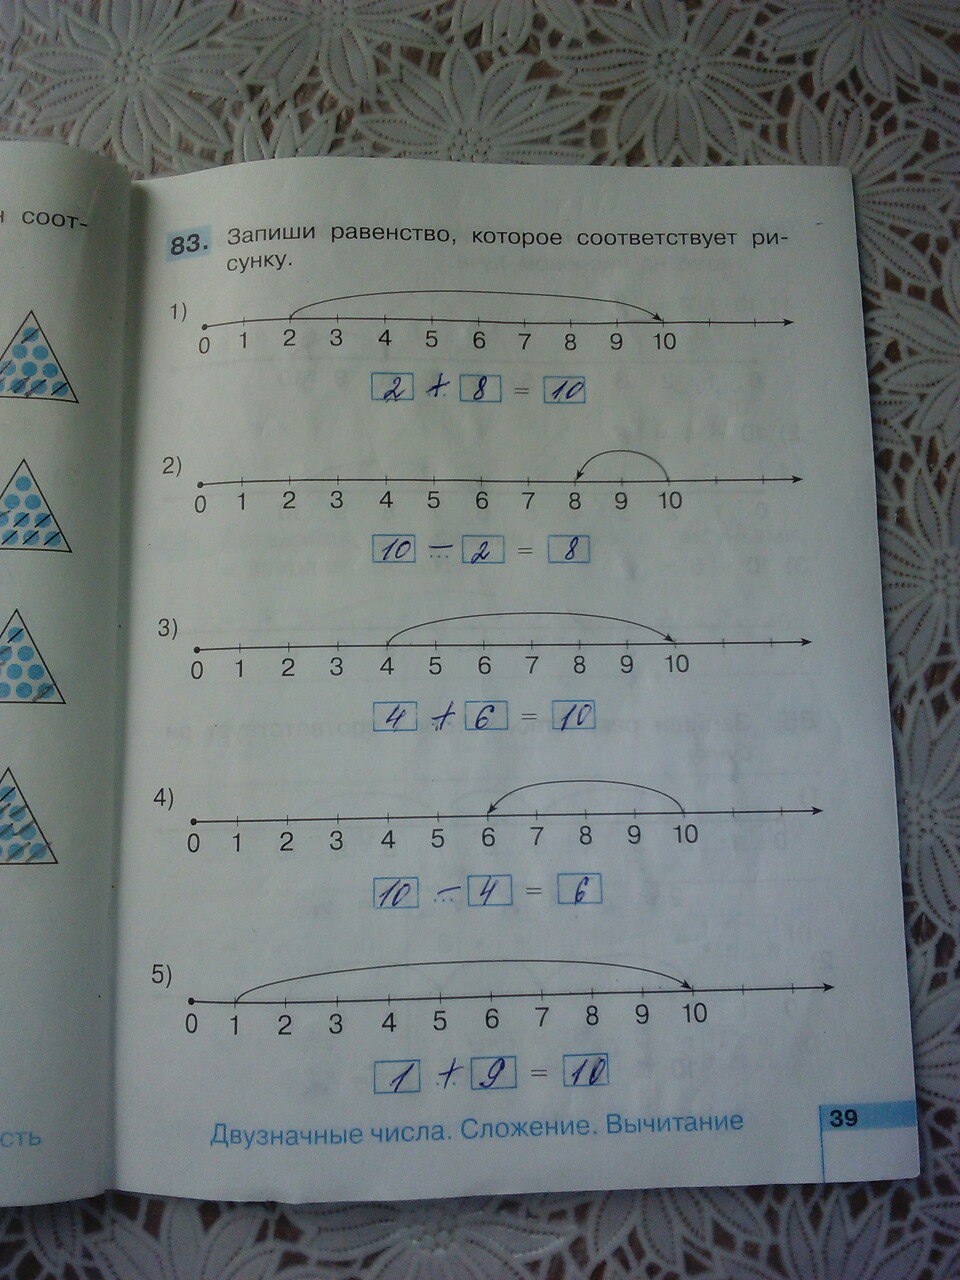 соот-
83. Запиши равенство, которое соответствует ри-
сунку.
1)
0 1 2 3 4 5 6 7 8 9 10
2 + 8 = 10
2)
0 1 2 3 4 5 6 7 8 9 10
10 - 2 = 8
3)
0 1 2 3 4 5 6 7 8 9 10
4 + 6 = 10
4)
0 1 2 3 4 5 6 7 8 9 10
10 - 4 = 6
5)
0 1 2 3 4 5 6 7 8 9 10
1 + 9 = 10
Двузначные числа. Сложение. Вычитание
39